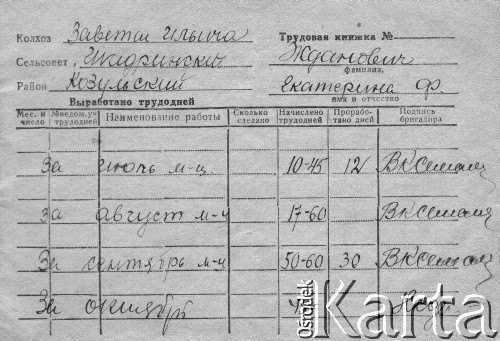 Колхоз Заветы Ильича Трудовая книжка №
Сельсовет Шадринский Жданович
фамилия,
Район Козульский Екатерина Ф.
имя и отчество
Выработано трудодней
Мес. и число №ведом.уч трудодней Наименование работы Сколько сделано Начислено трудодней Прорабо- тано дней Подпись бригадира
За июль м-ц. 10-45 12
За август м-ц 17-60
За сентябрь м-ц 50-60 30
За октябрь
Ośrodek Karta